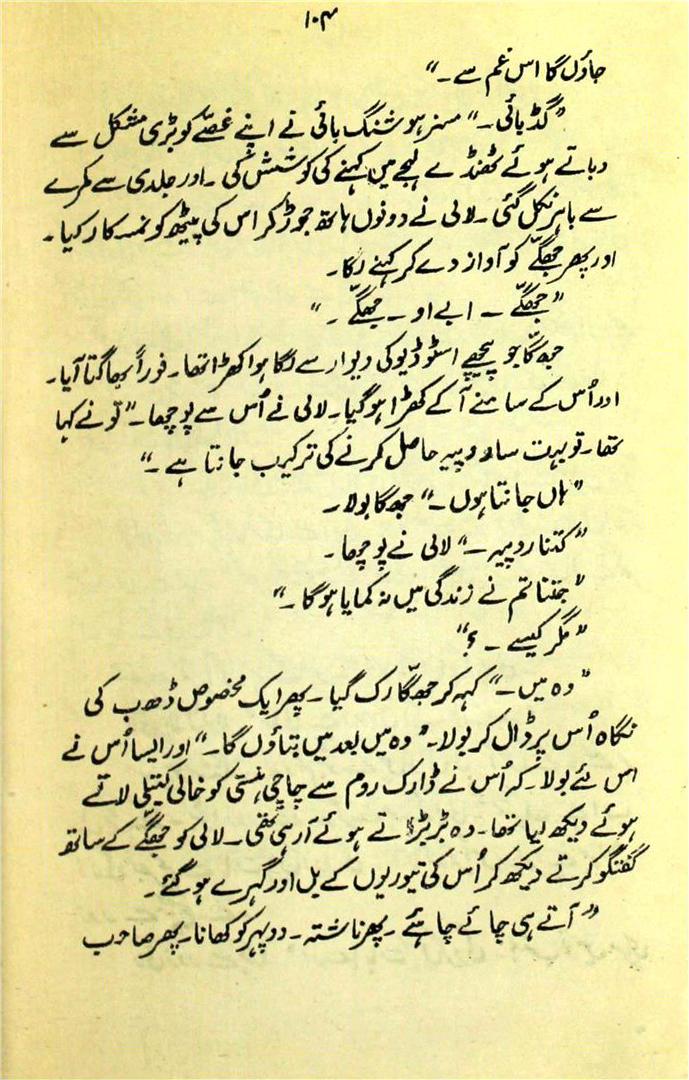 ۱۰۴
جاؤں گا اس غم سے۔"
"گڈ بائی۔" مسز ہوشنگ بائی نے اپنے غصّے کو بڑی مشکل سے
دباتے ہوئے ٹھنڈے لہجے میں کہنے کی کوشش کی۔ اور جلدی سے کمرے
سے باہر نکل گئی۔ لالی نے دونوں ہاتھ جوڑ کر اس کی پیٹھ کو نمسکار کیا۔
اور پھر جھگّے کو آواز دے کر کہنے لگا۔
"جھگّے ۔ ابے او ۔ جھگّے ۔"
جھگّا جو پیچھے اسٹوڈیو کی دیوار سے لگا ہوا کھڑا تھا۔ فوراً بھاگتا آیا۔
اور اُس کے سامنے آ کے کھڑا ہو گیا۔ لالی نے اُس سے پوچھا۔ "تو نے کہا
تھا۔ تو بہت سا روپیہ حاصل کرنے کی ترکیب جانتا ہے۔"
"ہاں جانتا ہوں۔" جھگا بولا۔
"کتنا روپیہ۔" لالی نے پوچھا۔
"جتنا تم نے زندگی میں نہ کمایا ہو گا۔"
"مگر کیسے ۔ ؟"
"وہ میں۔" کہہ کر جھگّا رک گیا۔ پھر ایک مخصوص ڈھب کی
نگاہ اُس پر ڈال کر بولا۔ "وہ میں بعد میں بتاؤں گا۔" اور ایسا اُس نے
اس لئے بولا۔ کہ اُس نے ڈارک روم سے چاچی ہنستی کو خالی کیتلی لاتے
ہوئے دیکھ لیا تھا۔ وہ بڑبڑاتے ہوئے آ رہی تھی۔ لالی کو جھگّے کے ساتھ
گفتگو کرتے دیکھ کر اُس کی تیوریوں کے بل اور گہرے ہو گئے۔
"آتے ہی چائے چاہئے۔ پھر ناشتہ۔ دوپہر کو کھانا۔ پھر صاحب